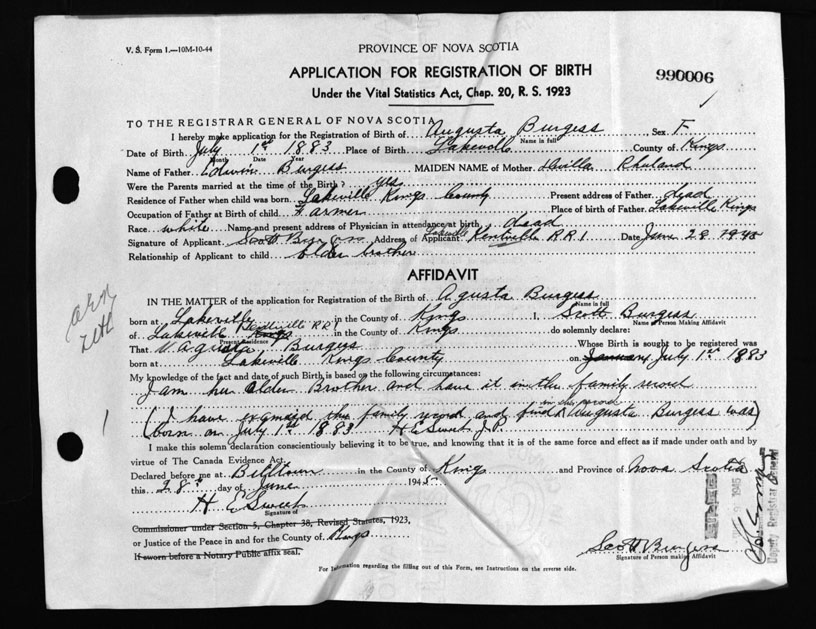 V. S. Form 1.—10M-10-44
PROVINCE OF NOVA SCOTIA
APPLICATION FOR REGISTRATION OF BIRTH
990006
Under the Vital Statistics Act, Chap. 20, R. S. 1923
TO THE REGISTRAR GENERAL OF NOVA SCOTIA
I hereby make application for the Registration of Birth of Augusta Burgess Sex F.
Name in full
Date of Birth July 1st 1883 Place of Birth Lakeville County of Kings
Month Date Year
Name of Father Edwin Burgess MAIDEN NAME of Mother Rhuland
Were the Parents married at the time of the Birth? yes
Residence of Father when child was born Lakeville Kings County Present address of Father dead
Occupation of Father at Birth of child Farmer Place of birth of Father Lakeville Kings
Race white Name and present address of Physician in attendance at birth dead
Signature of Applicant Scott Burgess Address of Applicant Lakeville Kentville R R 1 Date June 28 1945
Relationship of Applicant to child Elder brother
AFFIDAVIT
IN THE MATTER of the application for Registration of the Birth of Agusta Burgess
Name in full
born at Lakeville in the County of Kings I, Scott Burgess
Name of Person Making Affidavit
of Lakeville Kentville R R 1 in the County of Kings do solemnly declare:
Present Residence
That Burgess Whose Birth is sought to be registered was
born at Lakeville Kings County on January July 1st 1883
My knowledge of the fact and date of such Birth is based on the following circumstances:
I am her Elder Brother and have it in the family record
(I have examined the family record and find in the record Augusta Burgess was)
(born on July 1st 1883 H E Sweet J.P.
I make this solemn declaration conscientiously believing it to be true, and knowing that it is of the same force and effect as if made under oath and by
virtue of The Canada Evidence Act.
Declared before me at Billtown in the County of Kings and Province of Nova Scotia
this 28 day of June 1945
H E Sweet
Signature of
Commissioner under Section 5, Chapter 38, Revised Statutes, 1923,
or Justice of the Peace in and for the County of Kings
If sworn before a Notary Public affix seal.
Scott Burgess
Signature of Person making Affidavit
For Information regarding the filling out of this Form, see Instructions on the reverse side.
1945
Deputy Registrar General